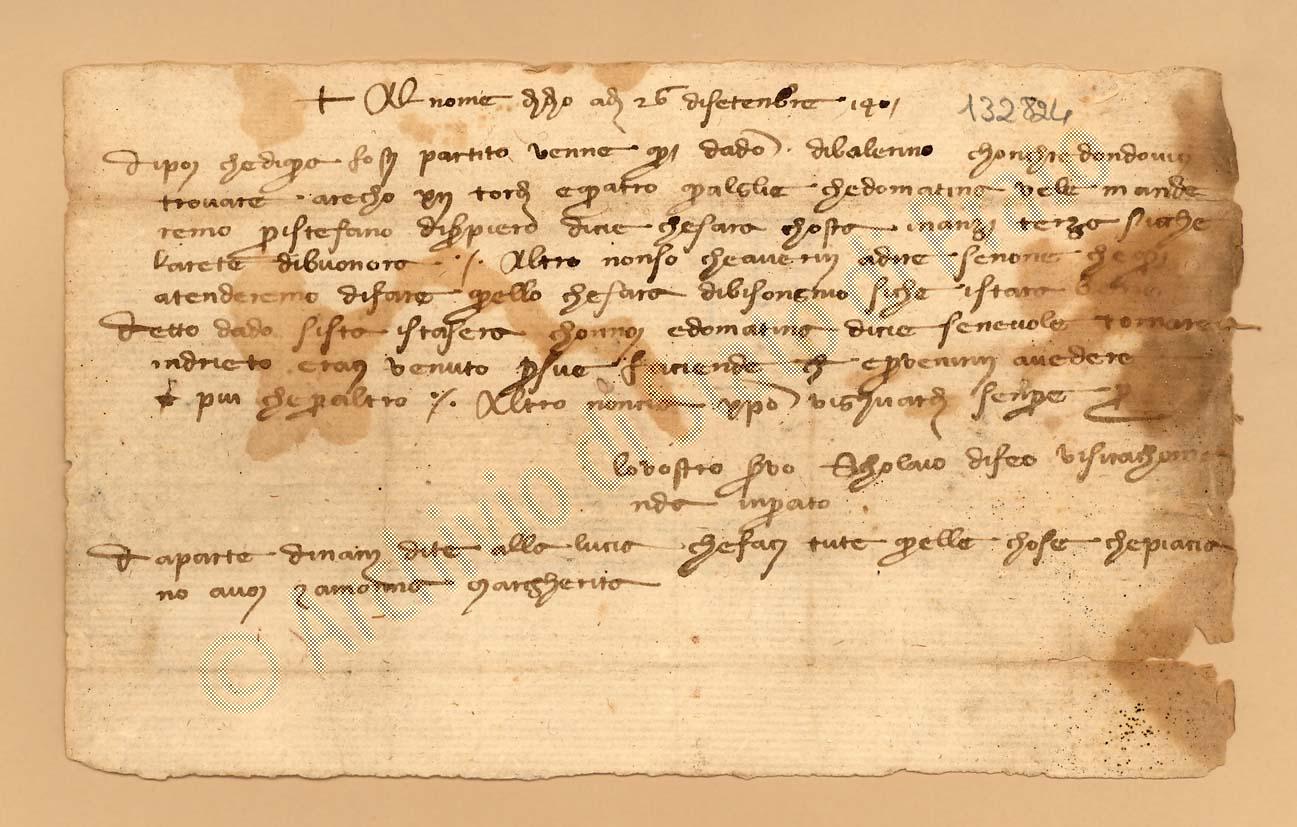 ✝ Al nome di dio adi 26 disetenbre 140
132824
Dipoi chediqua fosti partito venne qui dado dibalerino
trovare arecho XII tordi equatro qualglie chedomatina vele mande
remo pistefano diserpiero dicie chesara chosta inanzi terza siche
larete dibuonora ·/· Altro nonso cheavervi adire senone chequi
atenderemo difare quello chesara dibisongnio siche istara
Detto dado sista istasera chonnoi edomatina dicie senevole tornare
indrieto erasi venuto per sue faciende epervenirvi avedere
piu cheperaltro ·/· Altro noncia xpo vighuardi senpre
lovostro servo Scholaio disto
nda inprato
Daparte dinanzi dite alla lucia chefaci tute quelle chose chepiacia
no avoi zamonna margherita
© Archivio di Stato di Prato